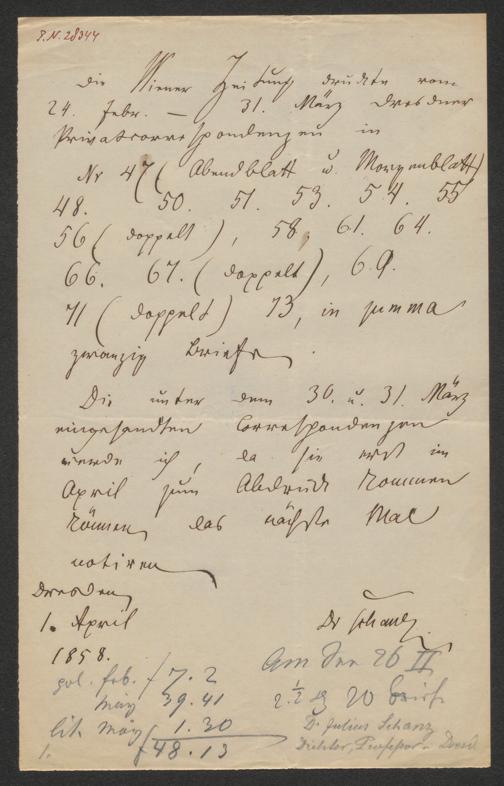 I.N. 28344
Die Wiener Zeitung druckte vom
24. Febr. — 31. März Dresdner
Privatcorrespondenzen in
Nr 47 (Abendblatt u. Morgenblatt)
48. 50. 51. 53. 54. 55
56 (doppelt), 58, 61. 64.
66. 67. (doppelt), 69.
71 (doppelt) 73, in summa
zwanzig Briefe.
Die unter dem 30. u. 31. März
eingesandten Correspondenzen
werde ich, da sie erst im
April zum Abdruck kommen
können, das nächste Mal
notiren
Dresden
1. April
1858.
Dr Schanz
pol. feb. f 7. 2
März 39. 41
lit. März 1. 30
f 48. 13
26 II
2 1/2 20 Briefe
Dr. Julius Schanz
Dichter, Professor